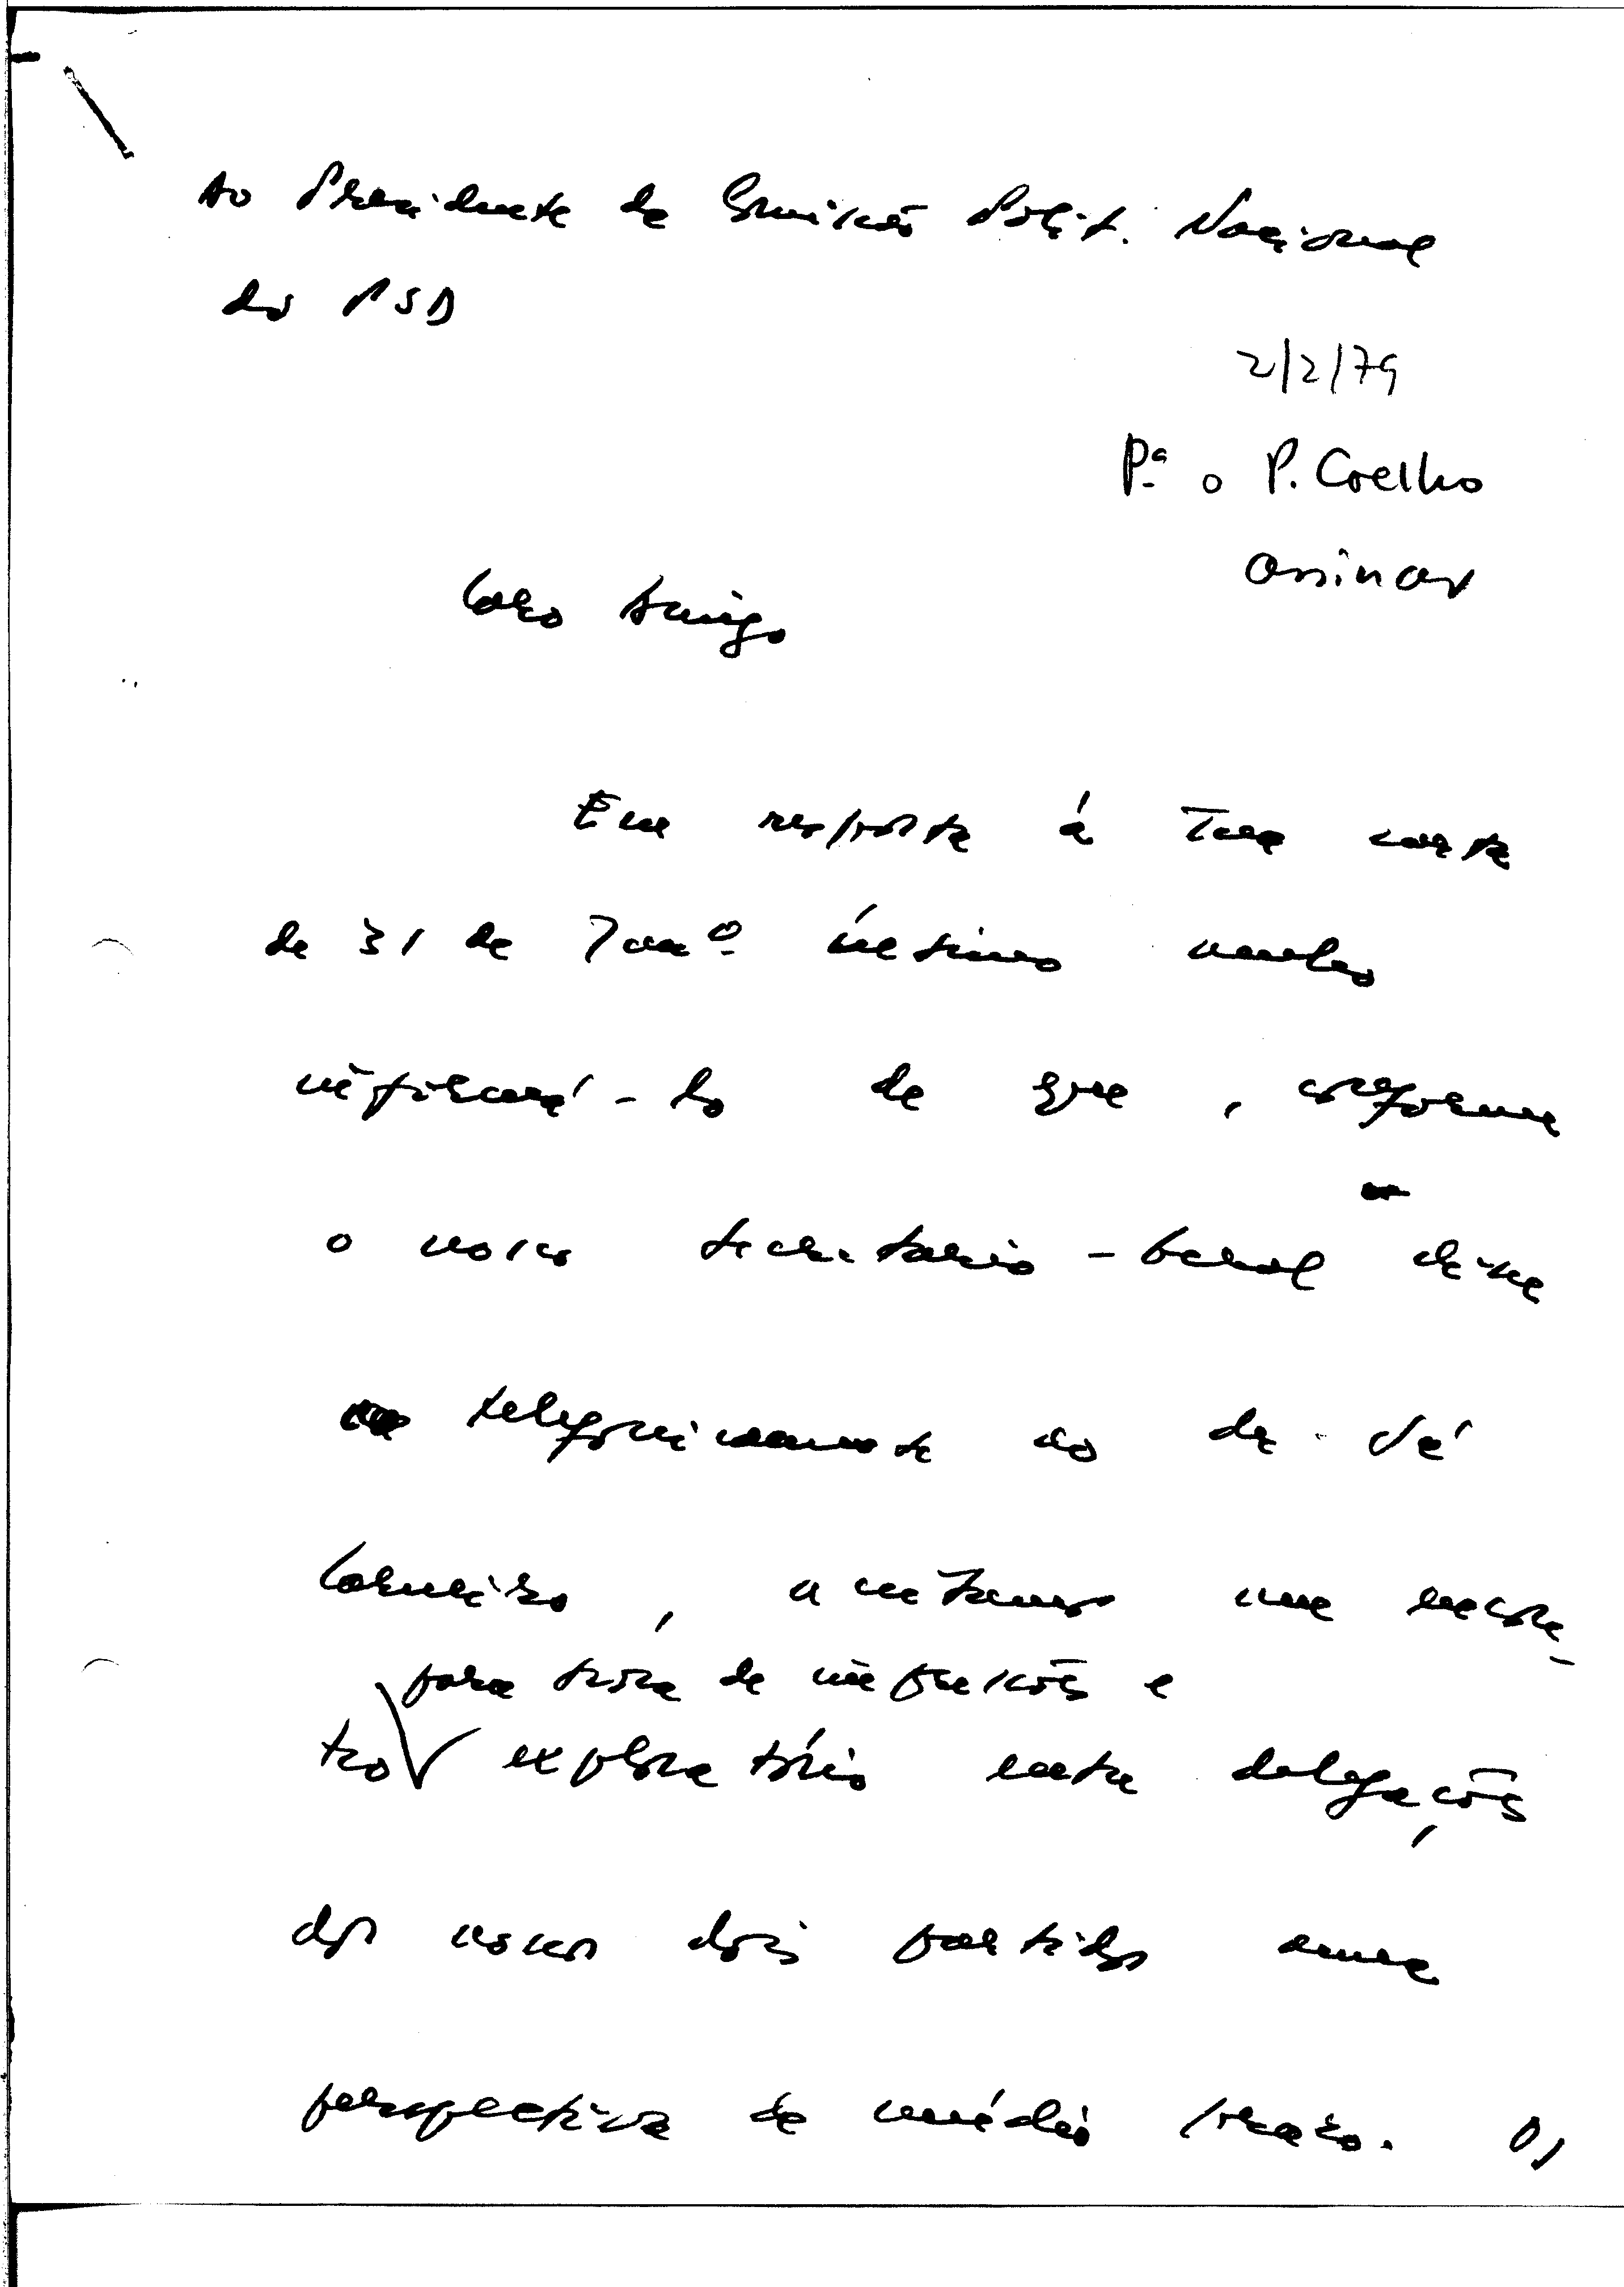 Ao Presidente da Comissão Polít. Nacional
do PSD
2/2/79
Pª o P. Coelho
assinar
Caro Amigo
Em resposta à Tua carta
de 31 de Janº último venho
informá-lo de que, conforme
o nosso Secretário-Geral disse
telefonicamente ao de Sá
Carneiro, aceitamos um encon-
para troca de impressões e
tro exploratório entre delegações
dos nossos dois partidos numa
perspectiva de médio prazo. Os